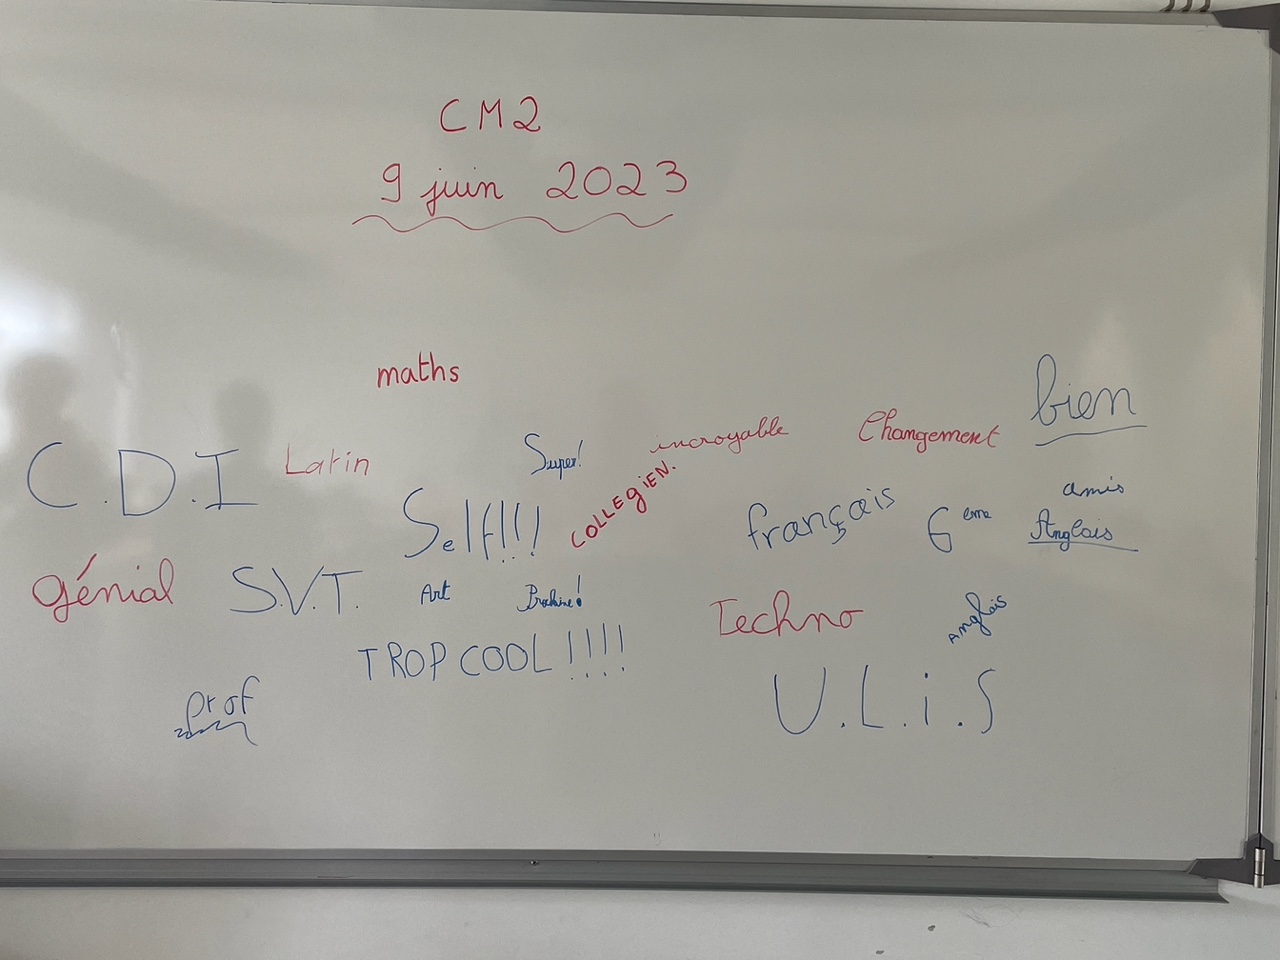 CM2
9 juin 2023
maths
bien
incroyable
Changement
C.D.I
Latin
Super!
COLLEGIEN.
amis
Self!!!
français
6 eme
Anglais
génial
S.V.T.
Art
Techno
Anglais
TROP COOL!!!!
prof
U.L.i.S